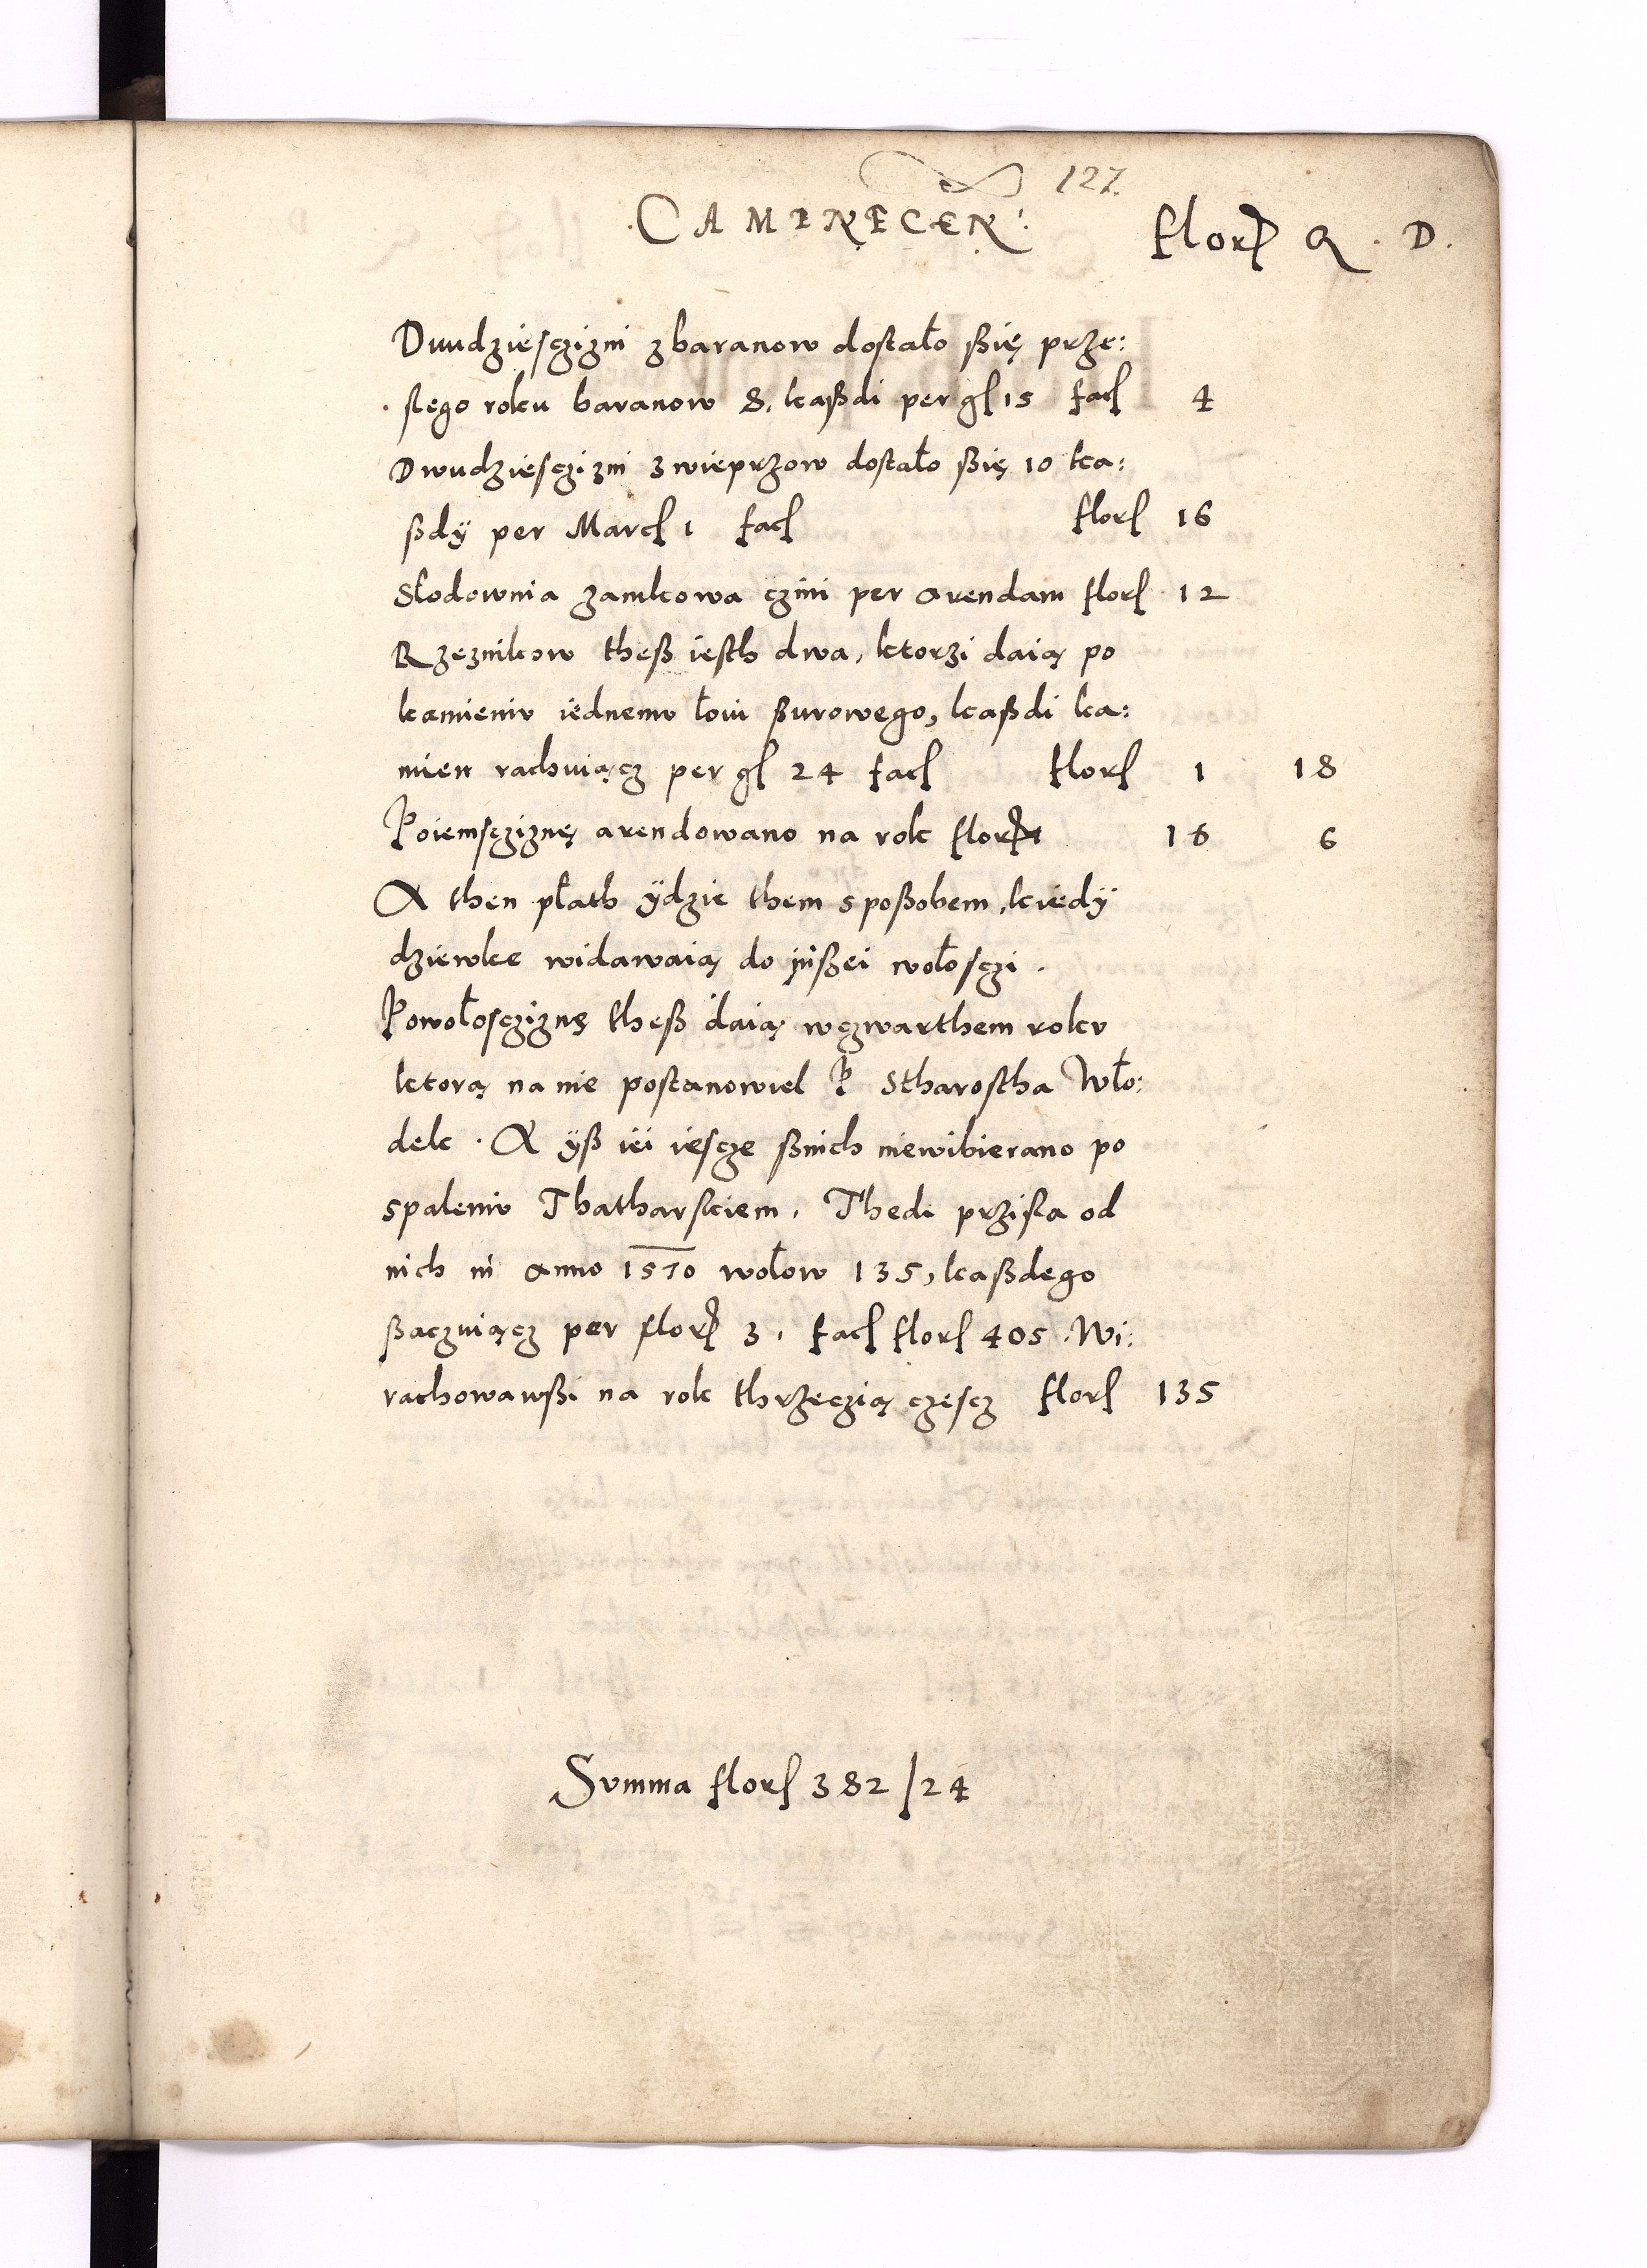 127.
CAMENECEN:
flor Q. D.
Dwudziesczizni z baranow dostało ßię prze:
słego roku baranow 8, kaßdi per gł 15 fac 4
Dwudziesczizni z wieprzow dostało ßię 10 ka:
ßdÿ per Marc 1 fac flor 16
Słodownia zamkowa czini per arendam flor 12
Rzeznikow theß iesth dwa, ktorzi daią po
kamieniv iednemv łoiu ßurowego, kaßdi ka:
mien rachuiącz per gł 24 fac flor 1 18
Poiemscziznę arendowano na rok flor 16 6
A then płath ÿdzie them sposßobem, kiedÿ
dziewkę widawaią do inßei wołosczi.
Powołoscziznę theß daią wczwarthem rokv
ktorą na nie postanowieł P Stharostha Wło:
dek. A ÿß iei iescze ßnich niewibierano po
spaleniv Thatharskiem, Thedi przisła od
nich in anno 1570 wołow 135, kaßdego
ßaczuiącz per flor 3. fac flor 405. Wi:
rachowawßi na rok thrzeczią częscz flor 135
Svmma flor 382/24